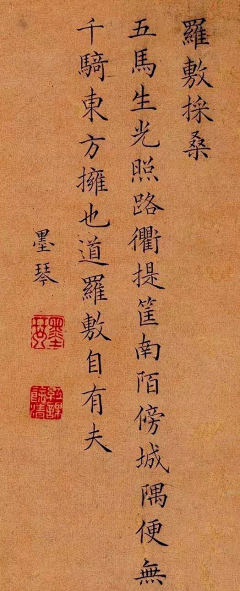 羅敷採桑
五馬生光照路衢提筐南陌傍城隅便無
千騎東方擁也道羅敷自有夫
墨琴
墨琴